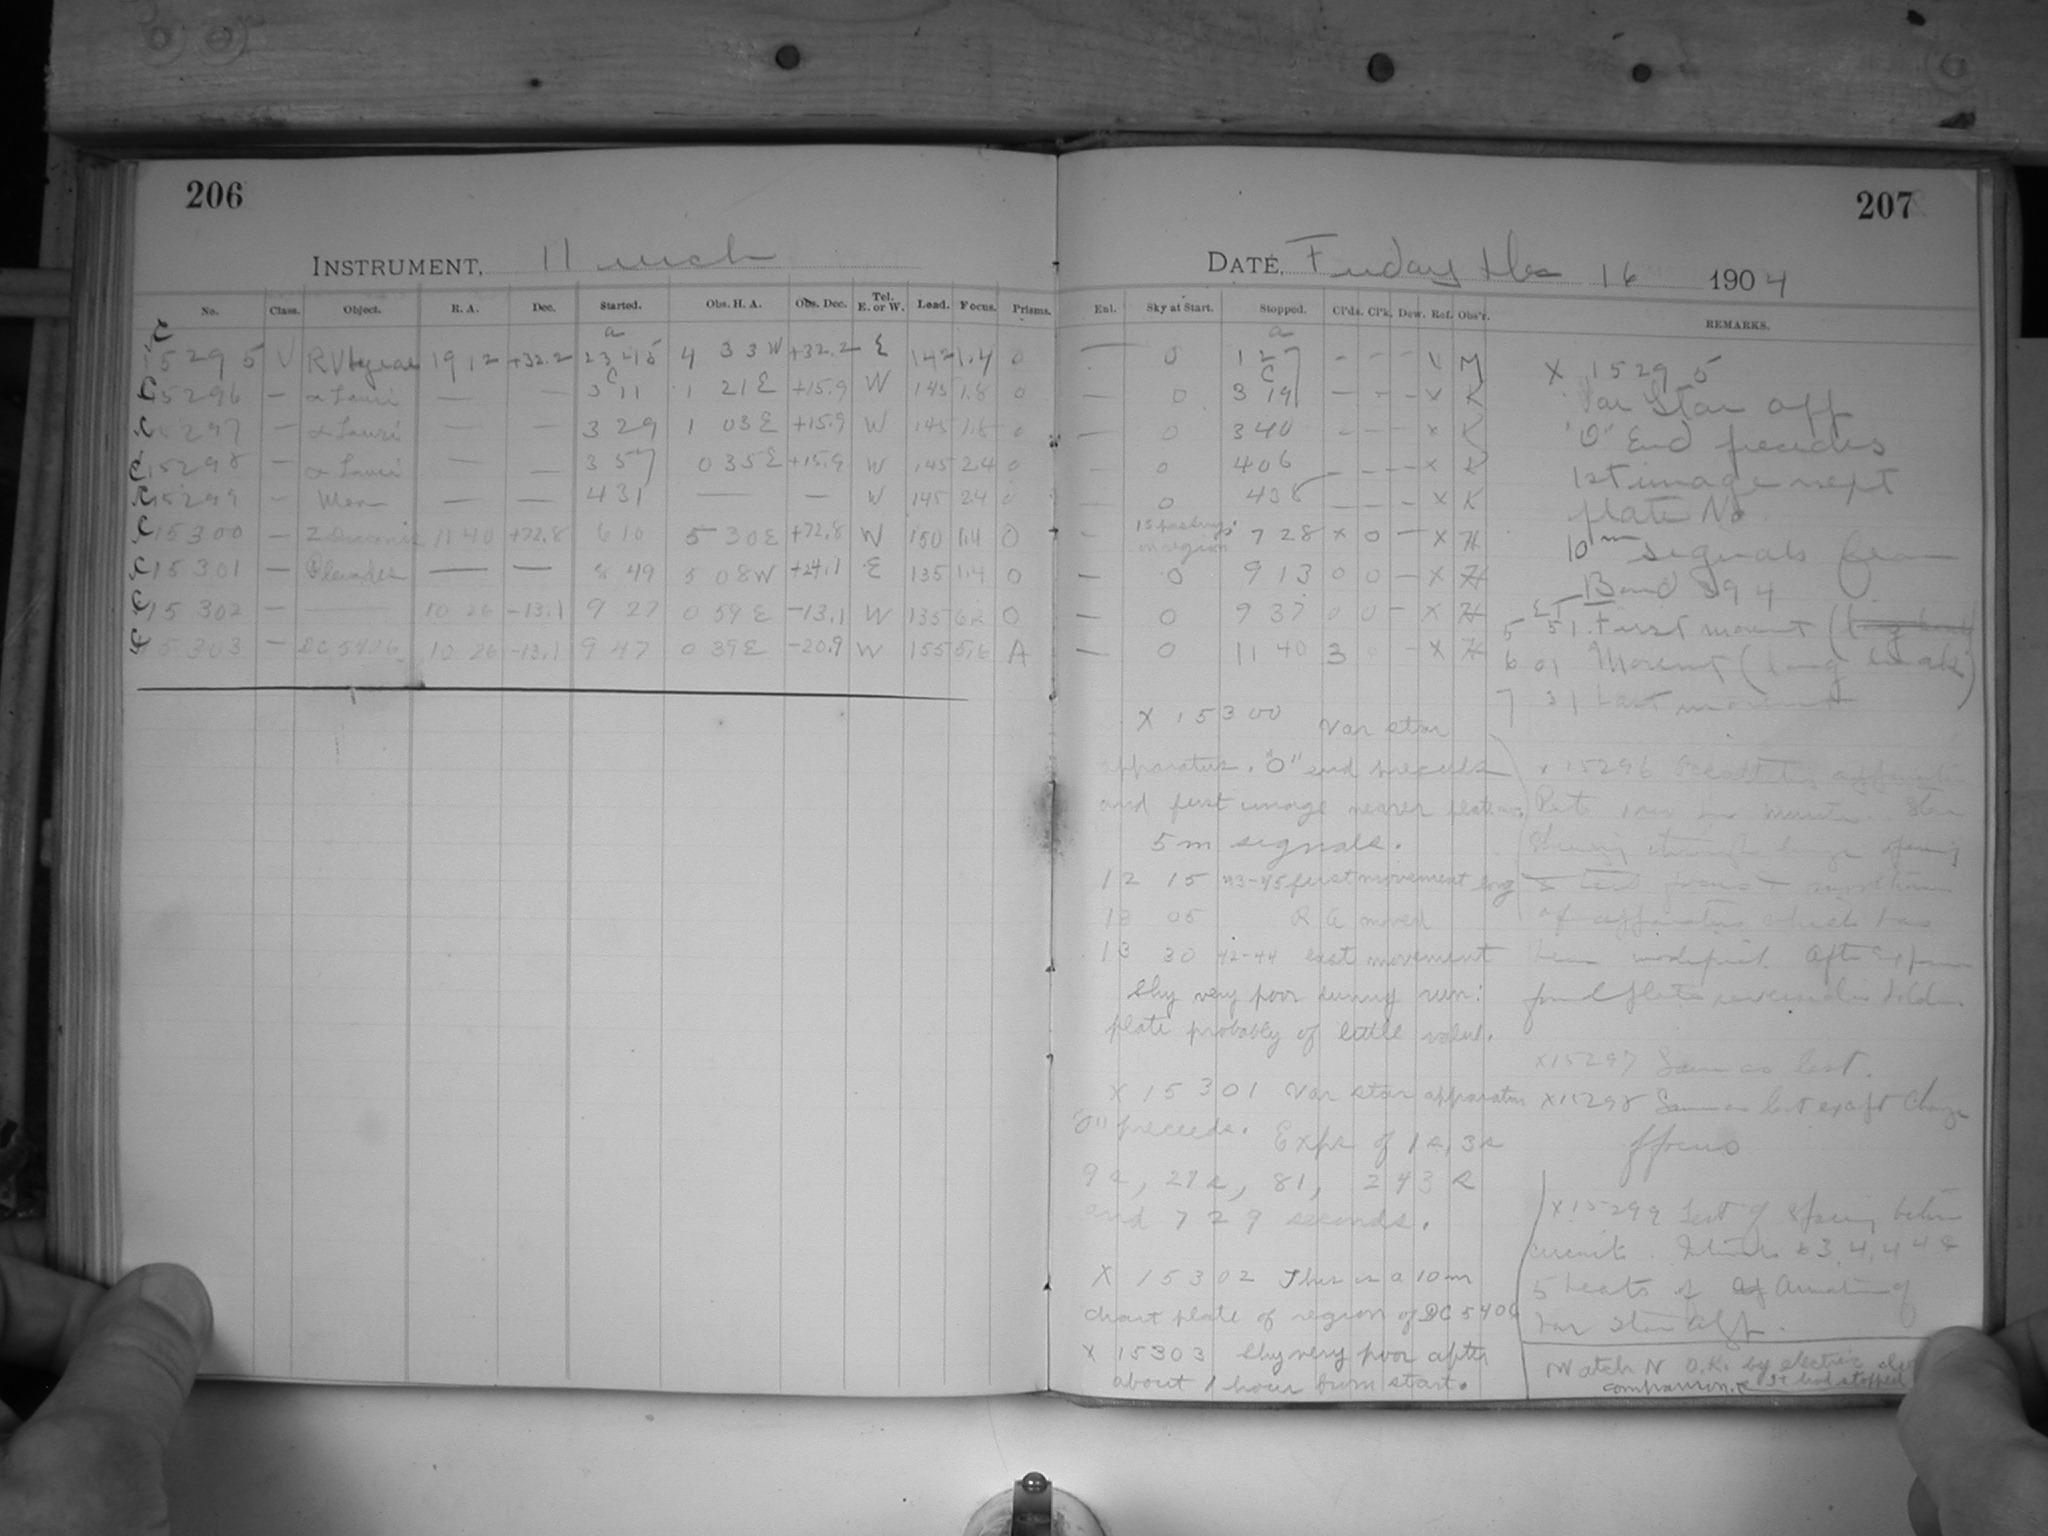 206
INSTRUMENT, 11 inch
No. Class. Object. R. A. Dec. Started. Obs. H. A. Obs. Dec. Tel. E. or W. Load. Focus. Prisms.
a
15295 V RV 19 12 +32.2 23 45 4 33 W +32.2 E 142 1.4 0
C
15296 — α Tauri — — 3 11 1 21 E +15.9 W 145 1.8 0
15297 — α Tauri — — 3 29 1 03 E +15.9 W 145 1.8 0
15298 — α Tauri — — 3 57 0 35 E +15.9 W 145 2.4 0
15299 — Moon — — 4 31 — — W 145 2.4 0
15300 — Z Draconis 11 40 +72.8 6 10 5 30 E +72.8 W 150 1.4 0
15301 — Pleiades — — 8 49 5 08 W +24.1 E 135 1.4 0
15302 — — 10 26 -13.1 9 27 0 59 E -13.1 W 135 6.2 0
15303 — DC 5406 10 26 -13.1 9 47 0 39 E -20.9 W 155 5.6 A
207
DATE, Friday Dec 16 1904
Enl. Sky at Start. Stopped. Cl'ds. Cl'k. Dew. Ref. Obs'r. REMARKS.
a
— 0 1 27 - - - x M
C
— 0 3 19 - - - x K
— 0 3 40 - - - x K
— 0 4 06 - - - x K
— 0 4 38 - - - x K
— in region 7 28 x 0 - x H
— 0 9 13 0 0 - x H
— 0 9 37 0 0 - x H
— 0 11 40 3 0 - x H
X 15295
Var Star app
"O" End precedes
1st image next
plate No
10m signals from
Bond 394
5 51 First movmt
6 01 Movmt (long break)
7 31 Last movmt
X 15300 Var star
apparatus. "O" end precedes
and first image nearer plate no.
5 m signals.
12 15 43-45 first movement long
13 05 R A moved
13 30 42-44 last movement
Sky very poor during run:
plate probably of little value.
X 15301 Var star apparatus
"O" precedes. Exps of 1s, 3s
9s, 27s, 81, 243s
and 729 seconds.
X 15302 This is a 10m
chart plate of region of DC 5406
X 15303 Sky very poor after
about 1 hour from start.
x 15296
through large opening
to test focus &
of apparatus which has
been modified. After Exposure
found plate reversed in holder.
X 15297 Same as last.
X 15298 Same as last except change
of focus
X 15299 Test of
circuit. 3, 4, 4, 4 &
5 beats of
Var Star App.
Watch N O.K. by electric
comparison. It had stopped